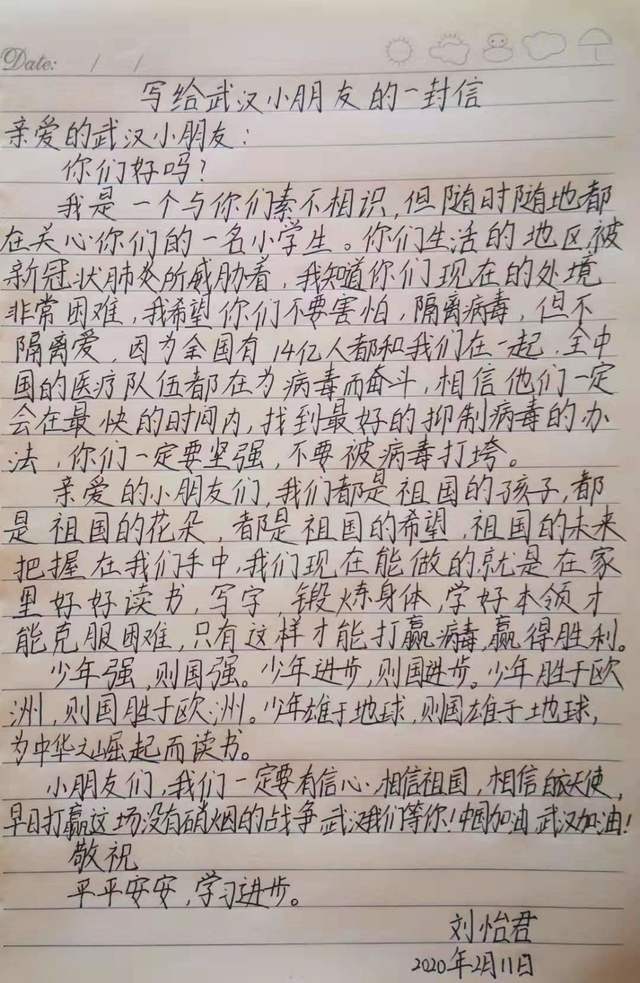 Date: / /
写给武汉小朋友的一封信
亲爱的武汉小朋友：
你们好吗？
我是一个与你们素不相识，但随时随地都
在关心你们的一名小学生。你们生活的地区，被
新冠状肺炎所威胁着，我知道你们现在的处境
非常困难，我希望你们不要害怕，隔离病毒，但不
隔离爱，因为全国有14亿人都和我们在一起，全中
国的医疗队伍都在为病毒而奋斗，相信他们一定
会在最快的时间内，找到最好的抑制病毒的办
法，你们一定要坚强，不要被病毒打垮。
亲爱的小朋友们，我们都是祖国的孩子，都
是祖国的花朵，都是祖国的希望，祖国的未来
把握在我们手中，我们现在能做的就是在家
里好好读书，写字，锻炼身体，学好本领才
能克服困难，只有这样才能打赢病毒，赢得胜利。
少年强，则国强。少年进步，则国进步。少年胜于欧
洲，则国胜于欧洲。少年雄于地球，则国雄于地球，
为中华之崛起而读书。
小朋友们，我们一定要有信心，相信祖国，相信白衣天使，
早日打赢这场没有硝烟的战争，武汉我们等你！中国加油，武汉加油！
敬祝
平平安安，学习进步。
刘怡君
2020年2月11日